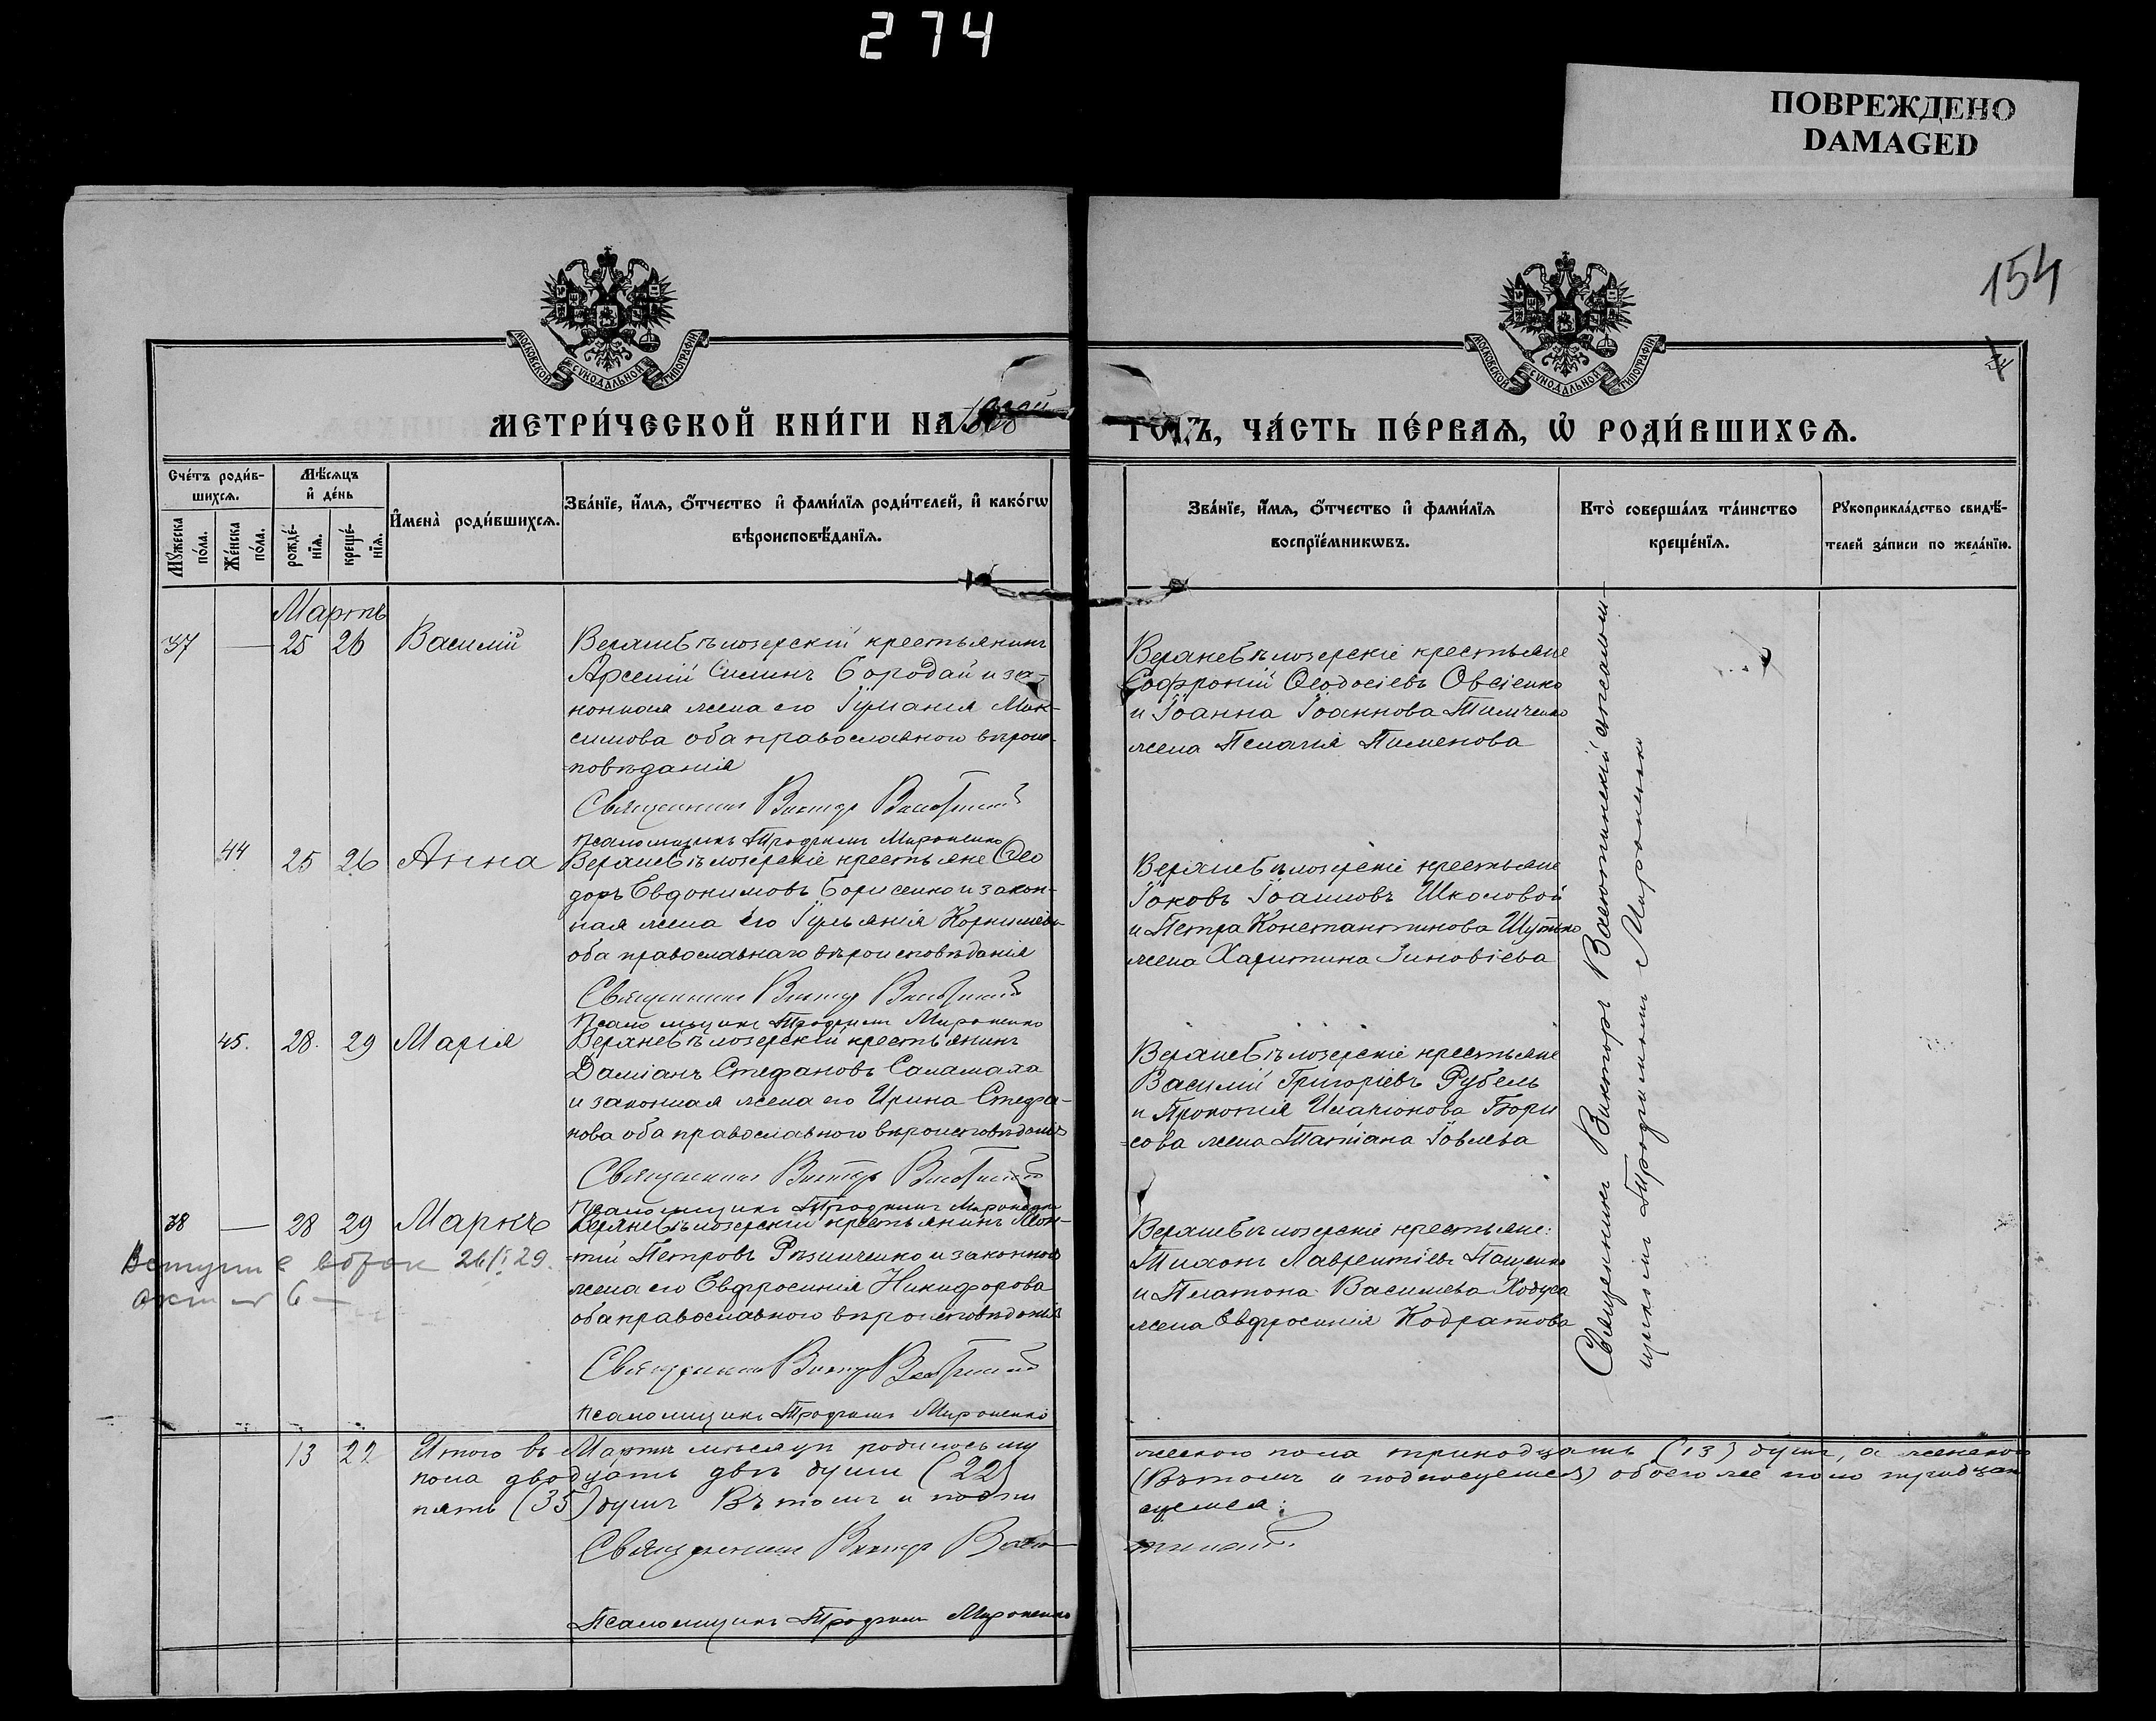 274
ПОВРЕЖДЕНО
DAMAGED
154
МОСКОВСКОЙ СѴНОДАЛЬНОЙ ТИПОГРАФІИ
МОСКОВСКОЙ СѴНОДАЛЬНОЙ ТИПОГРАФІИ
МЕТРИ́ЧЕСКОЙ КНИ́ГИ НА
ГОДЪ, ЧА́СТЬ ПЕ́РВАЯ, Ѡ҆ РОДИ́ВШИХСЯ.
Сче́тъ роди́в-
шихся.
Мѣ́сяцъ
и҆ де́нь
Мꙋ́жеска по́ла.
Же́нска по́ла.
рожде́-нїѧ.
креще́-нїѧ.
И҆мена̀ роди́вшихсѧ.
Зва́нїе, и҆́мѧ, ѻ҆́тчество и҆ фами́лїѧ роди́телей, и҆ како́гѡ
вѣроисповѣ́данїѧ.
Зва́нїе, и҆́мѧ, ѻ҆́тчество и҆ фами́лїѧ
воспрїе́мникѡвъ.
Кто̀ соверша́лъ та́инство
креще́нїѧ.
Рꙋкоприкла́дство свидѣ́-
телей за́писи по жела́нїю.
Мартъ
37 — 25 26 Василій
Верхнебѣлозерскій крестьянинъ
Арсеній Симинъ Бородай и за-
конная жена его Іуліанія Мак-
симова оба православного вѣроис-
повѣданія
Священникъ Викторъ
Псаломщикъ Трофимъ Мироненко
Верхнебѣлозерскіе крестьяне
Софроній Ѳеодосіевъ Овсіенко
и Іоанна Іоаннова Тимченко
жена Пелагія Пименова
44 25 26 Анна
Верхнебѣлозерскіе крестьяне Ѳео
доръ Евдокимовъ Борисенко и закон-
ная жена его Іуліанія Корнилієва
оба православнаго вѣроисповѣданія
Священникъ Викторъ
Псаломщикъ Трофимъ Мироненко
Верхнебѣлозерскіе крестьяне
Іаковъ Іоанновъ Школовой
и Петра Константинова Шутько
жена Харитина Зиновіева
45. 28. 29 Марія
Верхнебѣлозерскій крестьянинъ
Даміанъ Стефановъ Саламаха
и законная жена его Ирина Стефа-
нова оба православного вѣроисповѣданія
Священникъ Викторъ
Псаломщикъ Трофимъ Мироненко
Верхнебѣлозерскіе крестьяне
Василій Григоріевъ Рубель
и Прокопія Иларіонова Бори
сова жена Татіана Іовлева
38 — 28 29 Маркъ
Верхнебѣлозерскій крестьянинъ Леон-
тій Петровъ Рѣзниченко и законная
жена его Евфросинія Никифорова
оба православного вѣроисповѣданія
Священникъ Викторъ
Псаломщикъ Трофимъ Мироненко
Верхнебѣлозерскіе крестьяне:
Тихонъ Лаврентіевъ Пащенко
и Платона Васильева Ходуса
жена Евфросинія Кодратова
26/I 29.
6
Священникъ Викторъ
Трофимомъ Мироненко
13 22 Итого въ Мартѣ мѣсяцѣ родилось му
жеского пола тринадцать (13) душъ, а женского
пола двадцать двѣ души (22)
(Въ томъ и подписуемся) обоего же пола тридцать
пять (35) душъ Въ томъ и подпи
суемся:
Священникъ Викторъ
Псаломщикъ Трофимъ Мироненко